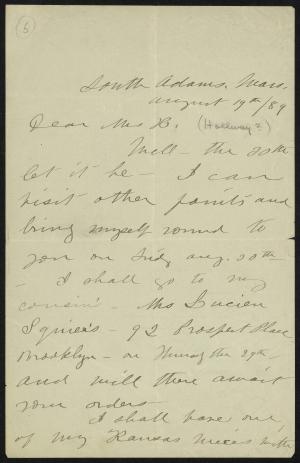 (5)
South Adams, Mass.
August 19th/89
Dear Mrs H. (Holloway?)
Well - the 30th
let it be - I can
visit other points and
bring myself round to
you on Fridy Aug. 30th -
- I shall go to my
cousin's Mrs Lucien
Squier's - 92 Prospect Place
Brooklyn - on Thursday the 29th -
and will there await
your orders -
I shall have one
of my Kansas nieces with